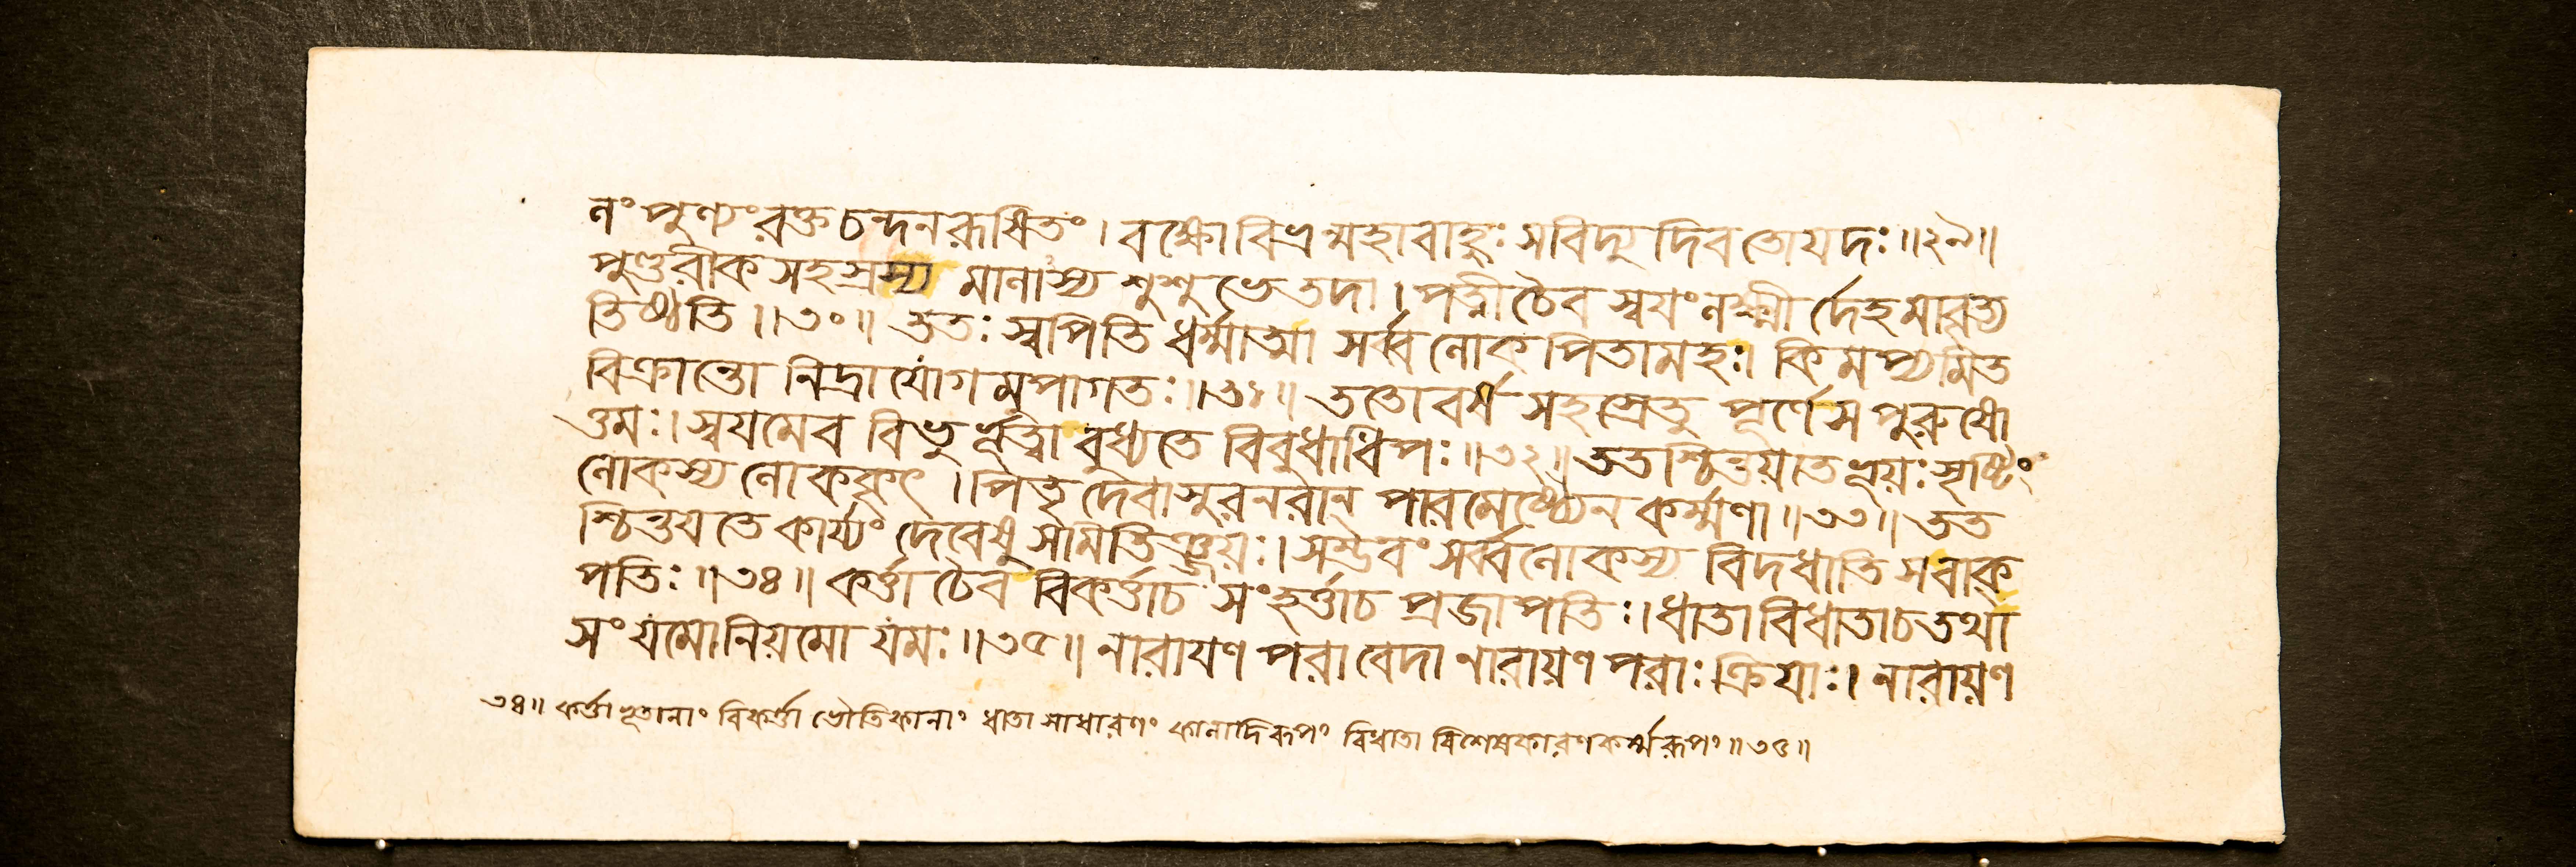 নং পুণ্যং রক্ত চন্দনরূষিতং । বক্ষো বিভ্রন্মহাবাহুঃ সবিদ্যুদিব তোয়দঃ ॥২৯॥
পুণ্ডরীক সহস্রস্য মালাস্য শুশুভে তদা । পত্নী চৈব স্বয়ং লক্ষ্মী র্দেহমাবৃত্য
তিষ্ঠতি ॥৩০॥ ততঃ স্বপিতি ধর্ম্মাত্মা সর্ব্ব লোক পিতামহঃ। কিমপ্যমিত
বিক্রান্তো নিদ্রাযোগমুপাগতঃ ॥৩১॥ ততো বর্ষ সহস্রেতু পূর্ণে স পুরুষো
ত্তমঃ। স্বয়মেব বিভু র্ভূত্বা বুধ্যতে বিবুধাধিপঃ ॥৩২॥ ততশ্চিন্তয়তে ভূয়ঃ সৃষ্টিং
লোকস্য লোককৃৎ । পিতৃ দেবাসুরনরান্ পারমেষ্ঠ্যেন কর্ম্মণা ॥৩৩॥ তত
শ্চিন্তয়তে কার্য্যং দেবেষু সমিতিঞ্জয়ঃ। সম্ভবং সর্ব্বলোকস্য বিদধাতি সবাক্
পতিঃ ॥৩৪॥ কর্ত্তা চৈব বিকর্ত্তাচ সংহর্ত্তাচ প্রজাপতিঃ। ধাতা বিধাতাচ তথা
সংযমো নিয়মো যমঃ ॥৩৫॥ নারায়ণ পরা বেদা নারায়ণ পরাঃ ক্রিয়াঃ। নারায়ণ
৩৪॥ কর্ত্তা ভূতানাং বিকর্ত্তা ভৌতিকানাং ধাতা সাধারণং কালাদিরূপং বিধাতা বিশেষকারণকর্ম্মরূপং ॥৩৫॥